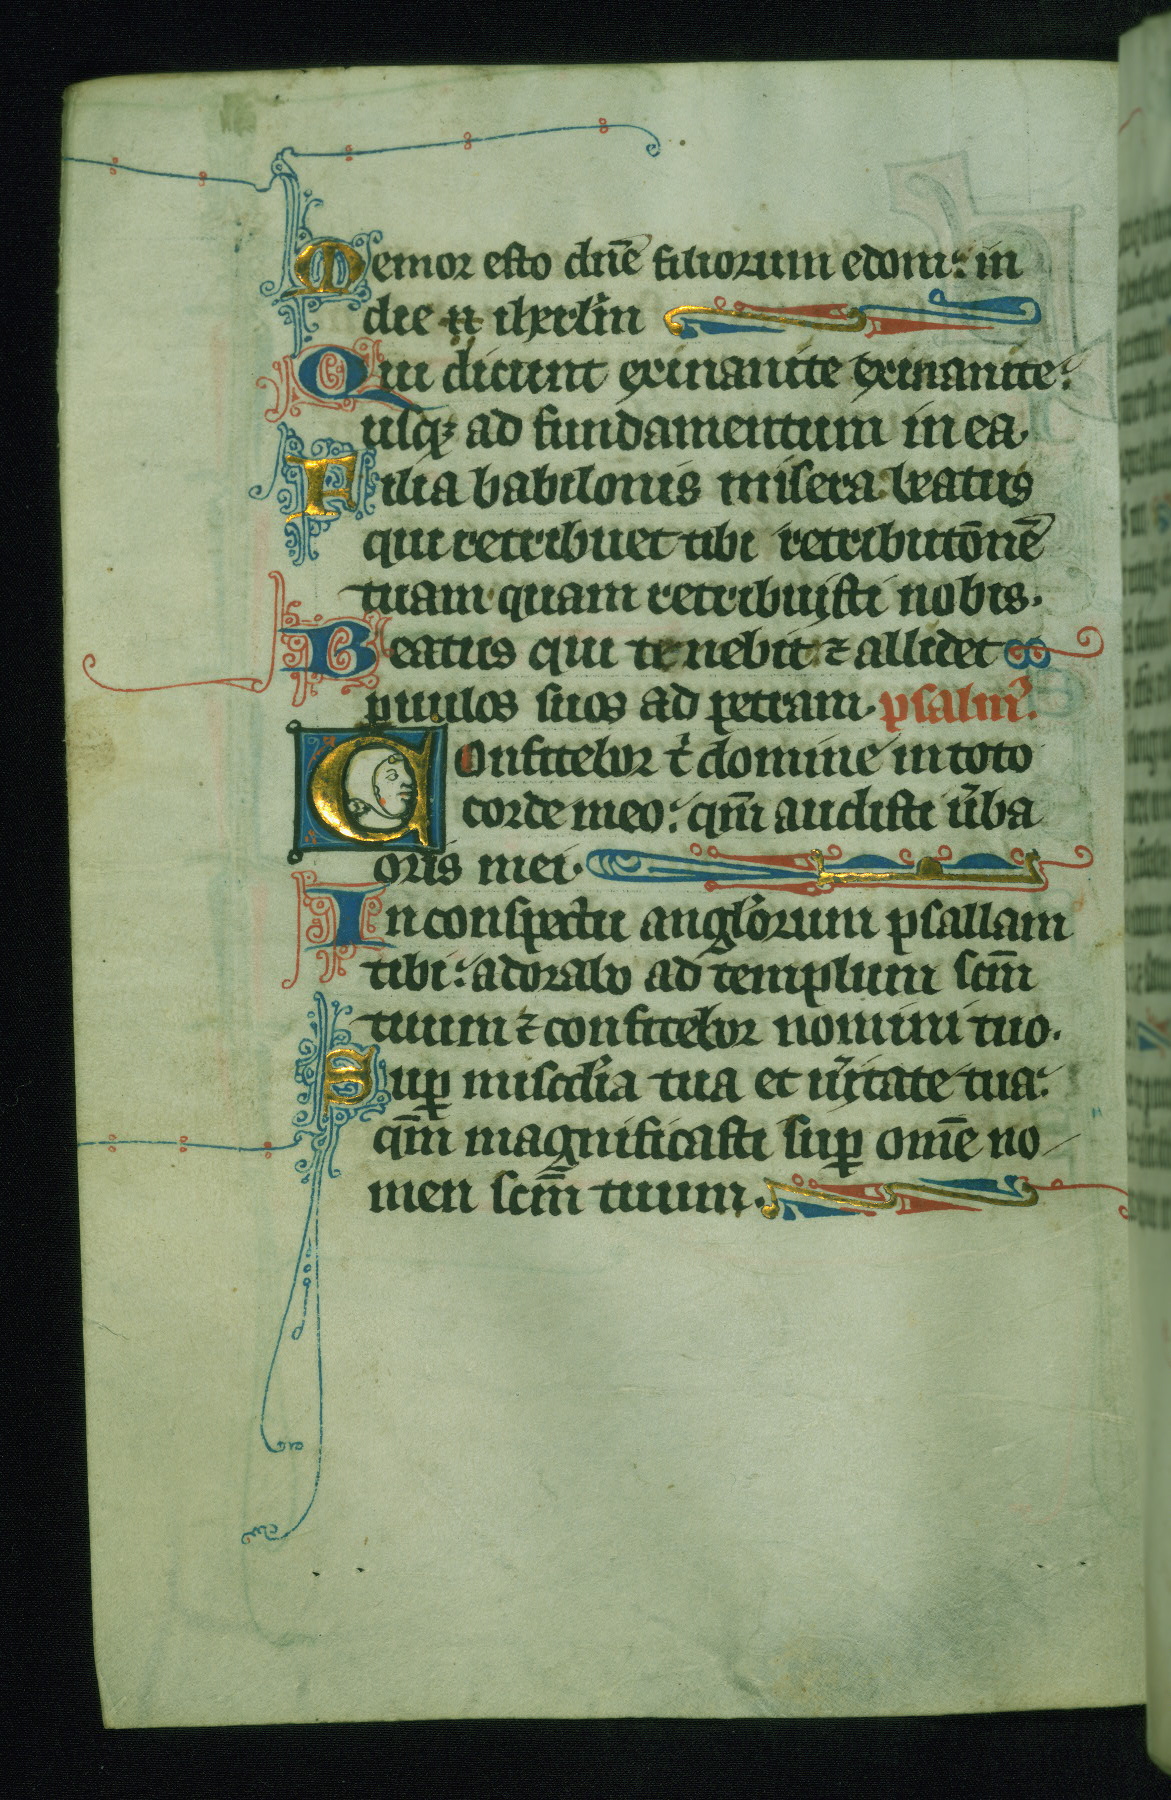 Memor esto dn̄e filiorum edom: in
die ihrl̄m
Qui dicunt exinanite exinanite:
usq₃ ad fundamentum in ea.
Filia babilonis misera beatus
qui retribuet tibi retributōnē
tuam quam retribuisti nobis.
Beatus qui tenebit ⁊ allidet
puulos suos ad petram. psalm᷒.
Confitebor t̄ domine in toto
corde meo: qm̄ audisti ūba
oris mei.
In conspectu angl̄orum psallam
tibi: adorabo ad templum scm̄
tuum ⁊ confitebor nomini tuo.
Suꝑ miscd̄ia tua et ūitate tua:
qm̄ magnificasti suꝑ om̄e no
men scm̄ tuum.